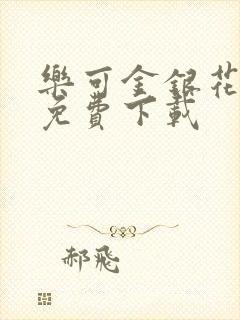 樂可金銀花
免費下載
郝飛